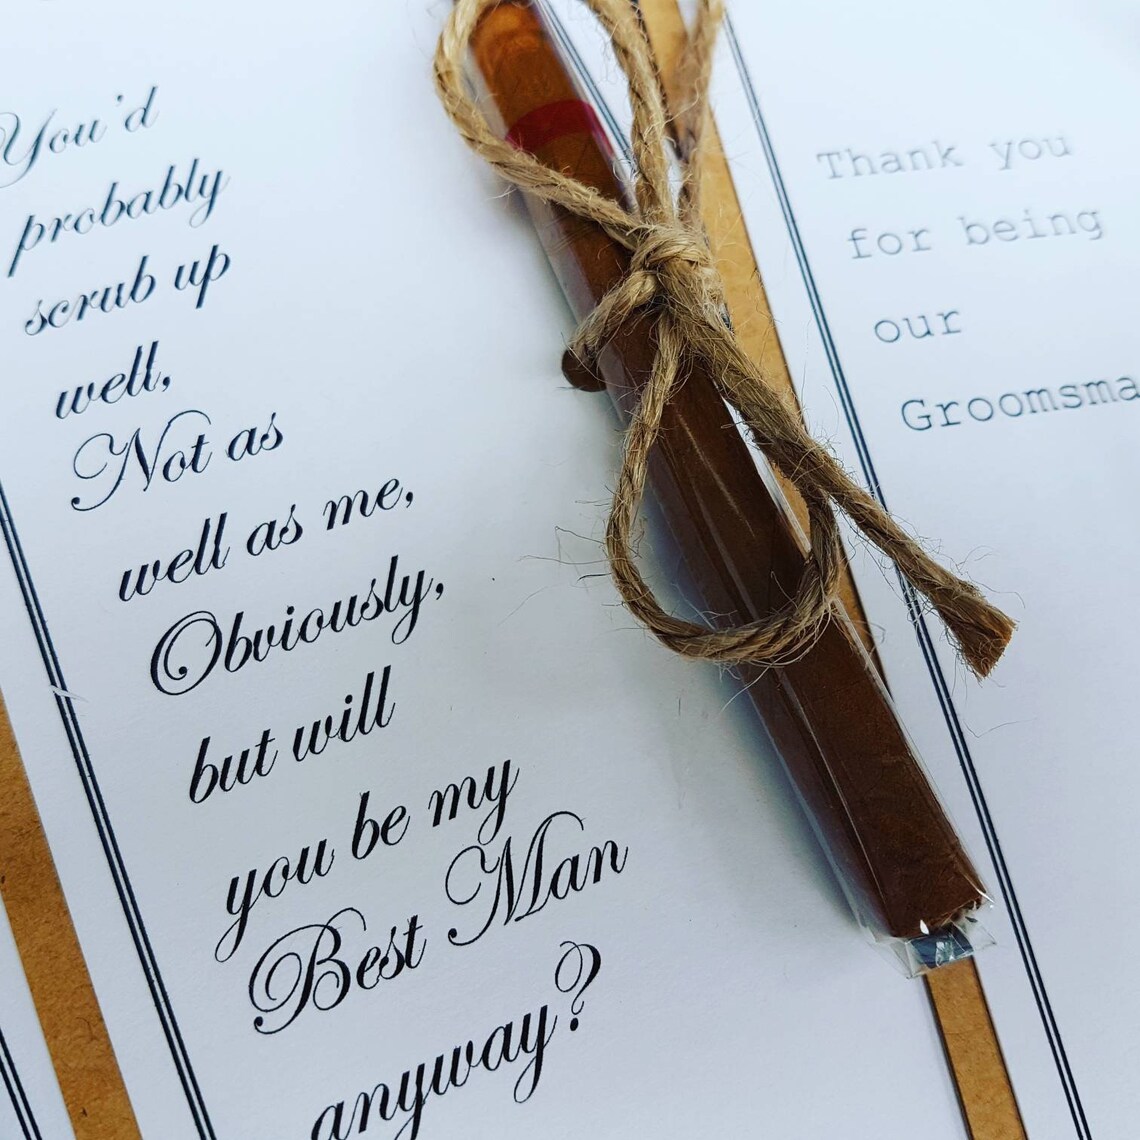 You'd
probably
scrub up
well,
Not as
well as me,
Obviously,
but will
you be my
Best Man
anyway?
Thank you
for being
our
Groomsma